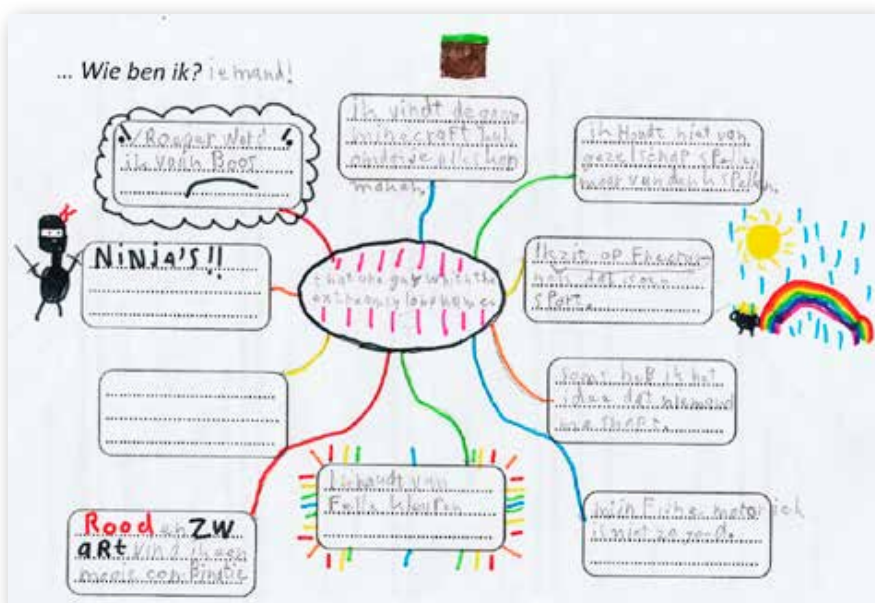 ... Wie ben ik? iemand!
ik vindt de game
minecraft leuk
omdat je alles kan
maken.
ik Houdt niet van
gezelschap spellen
maar van denk spellen.
Rooper Word
ik vaak Boos
NiNja's!!
that one guy which the
extreemly long names
Ik zit op
dat is een
sport.
soms heb ik het
idee dat niemand
me snapt.
Ik houdt van
Felle kleuren
mijn Fijne motoriek
is niet zo goed.
Rood en ZW
aRt vind ik een
mooie combinatie